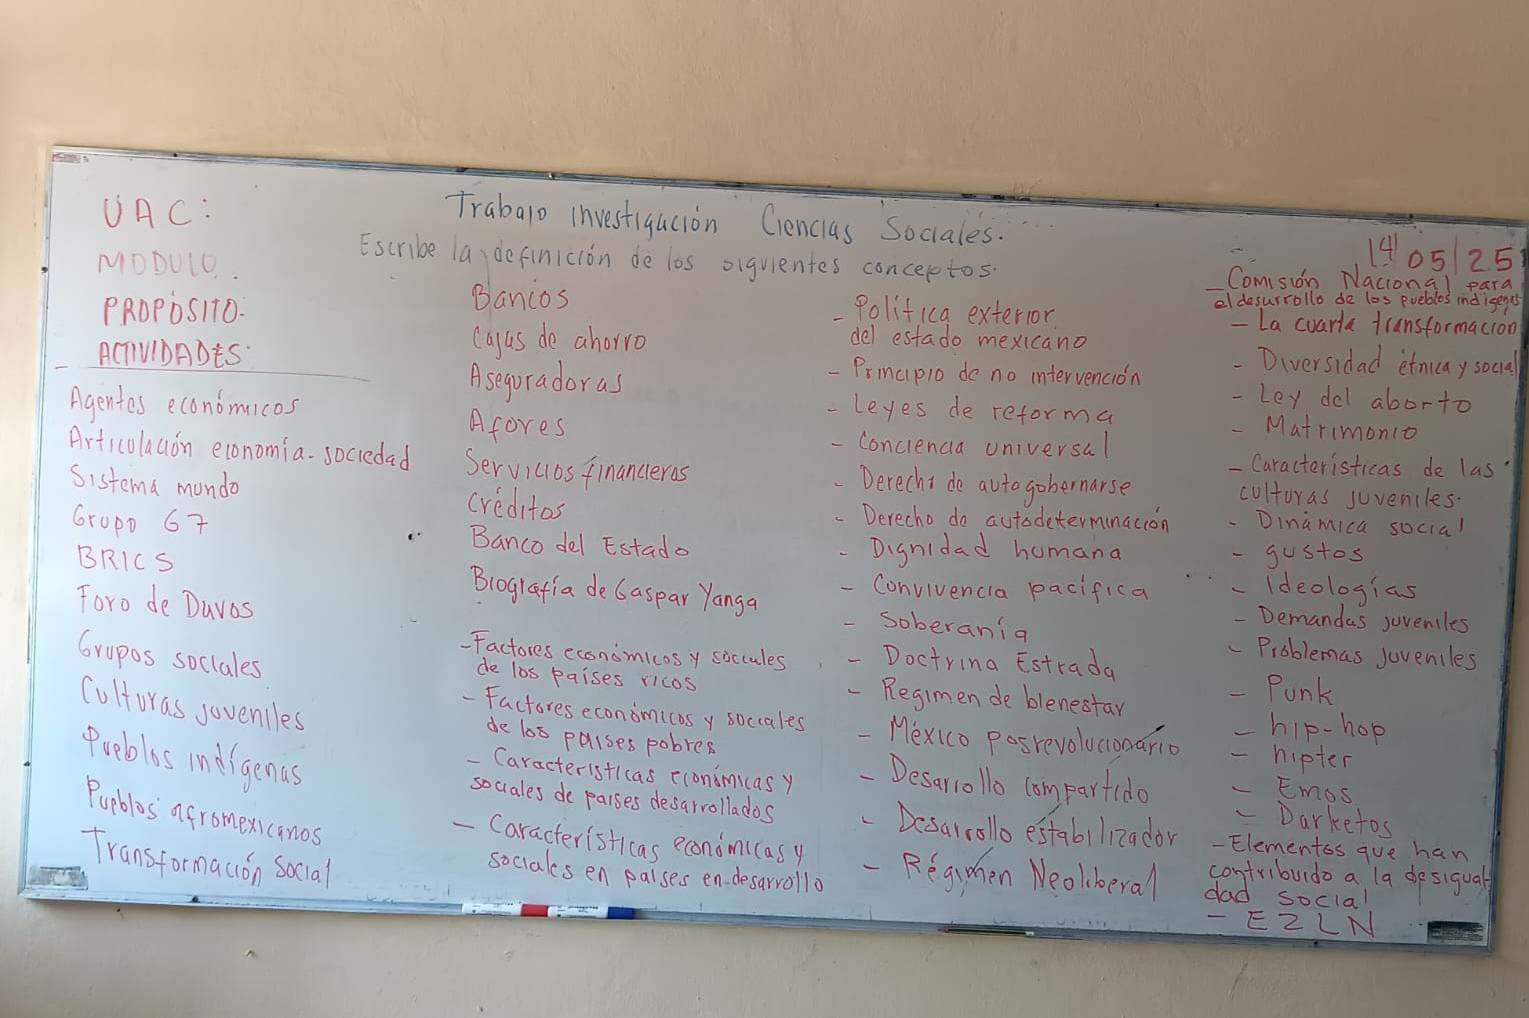 UAC:
MODULO.
PROPÓSITO:
ACTIVIDADES:
Trabajo investigación Ciencias Sociales.
Escribe la definición de los siguientes conceptos.
14/05/25
Agentes económicos
Articulación economía-sociedad
Sistema mundo
Grupo G7
BRICS
Foro de Davos
Grupos sociales
Culturas juveniles
Pueblos indígenas
Pueblos afromexicanos
Transformación social
Bancos
Cajas de ahorro
Aseguradoras
Afores
Servicios financieros
Créditos
Banco del Estado
Biografía de Gaspar Yanga
-Factores económicos y sociales
de los países ricos
-Factores económicos y sociales
de los países pobres
- Características económicas y
sociales de países desarrollados
- Características económicas y
sociales en países en desarrollo
- Política exterior
del estado mexicano
- Principio de no intervención
- Leyes de reforma
- Conciencia universal
- Derecho de autogobernarse
- Derecho de autodeterminación
- Dignidad humana
- Convivencia pacífica
- Soberanía
- Doctrina Estrada
- Regimen de bienestar
- México posrevolucionario
- Desarrollo compartido
- Desarrollo estabilizador
- Régimen Neoliberal
- Comisión Nacional para
el desarrollo de los pueblos indígenas
- La cuarta transformación
- Diversidad étnica y social
- Ley del aborto
- Matrimonio
- Características de las
culturas juveniles.
- Dinámica social
- gustos
- Ideologías
- Demandas juveniles
- Problemas juveniles
- Punk
- hip-hop
- hipter
- Emos
- Darketos
- Elementos que han
contribuido a la desigual
dad social
- EZLN